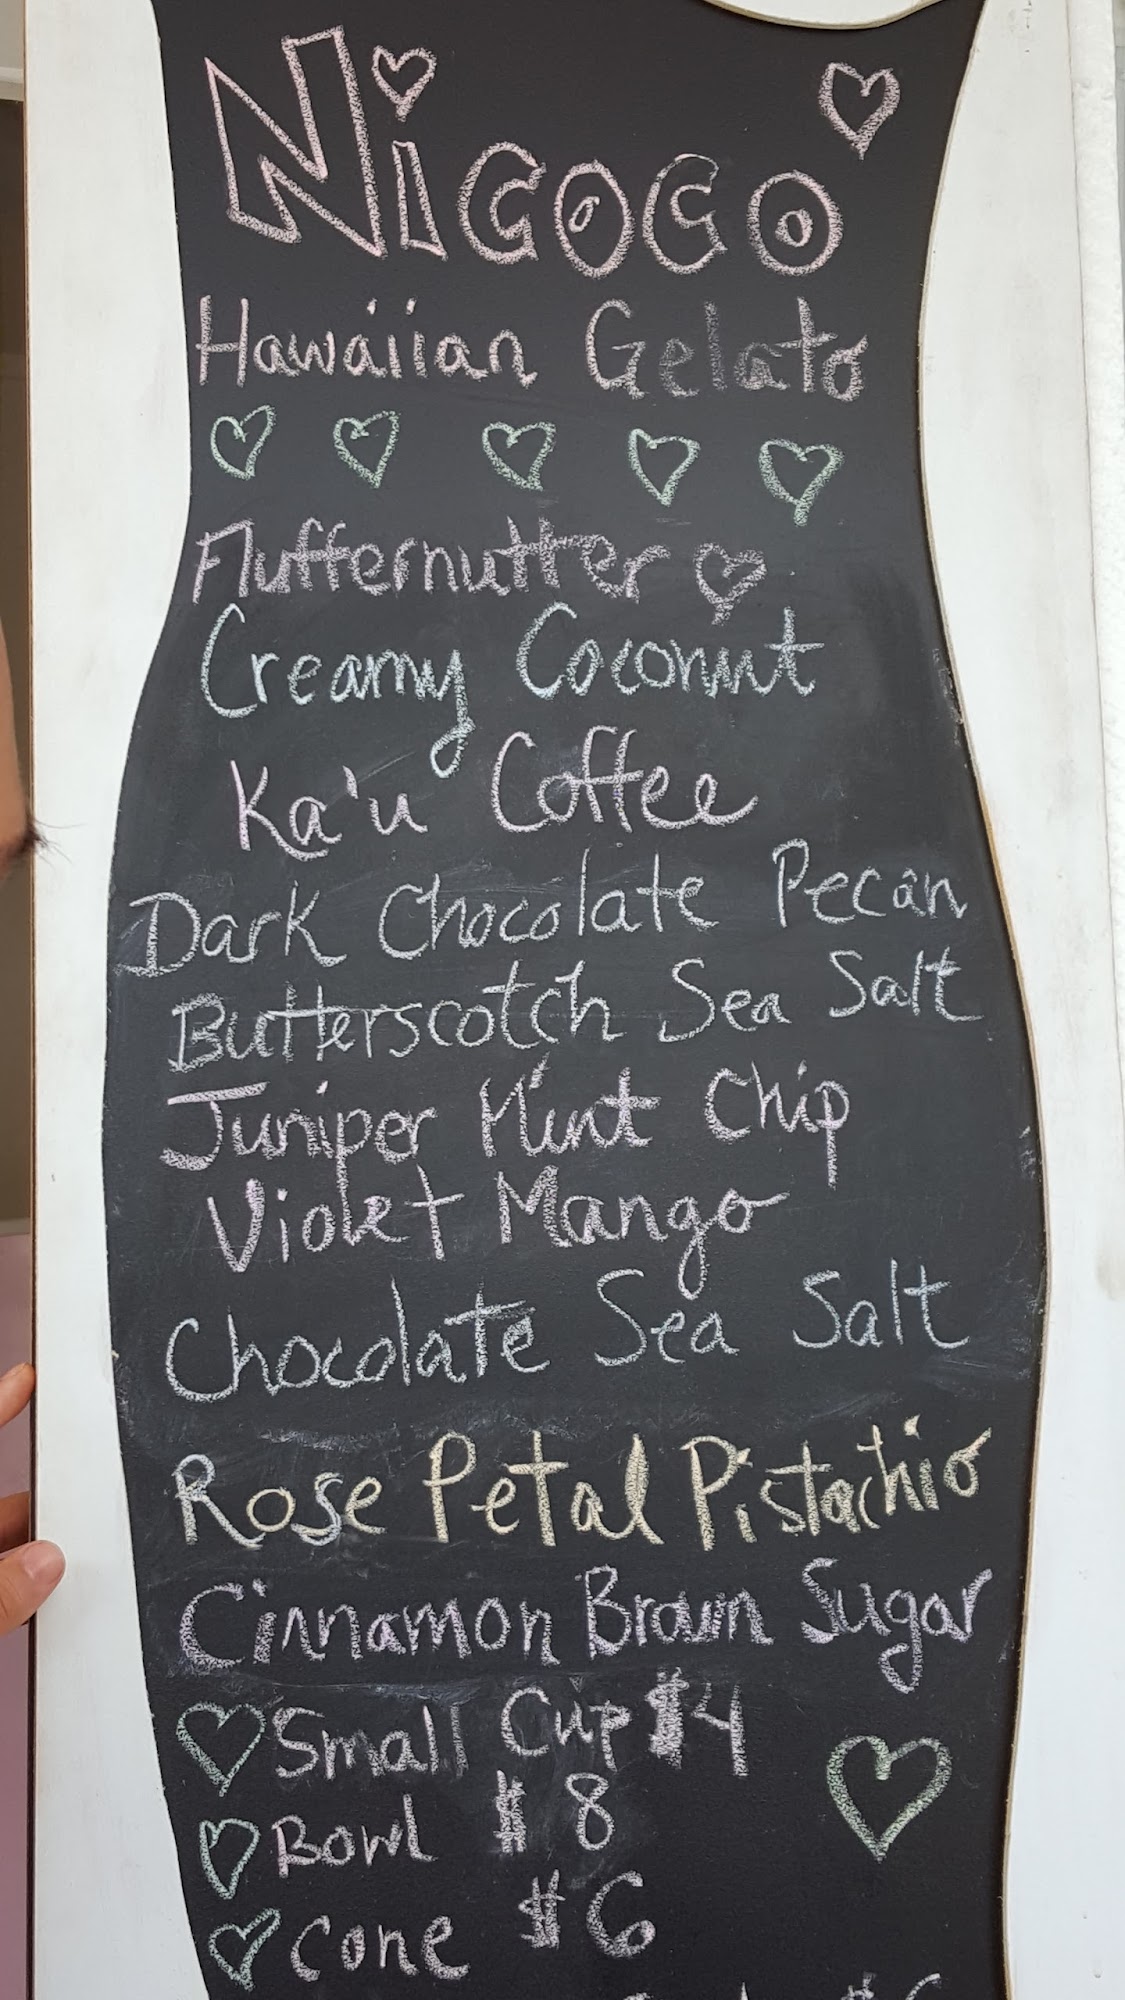 Nicoco
Hawaiian Gelato
Fluffernutter
Creamy Coconut
Ka'u Coffee
Dark Chocolate Pecan
Butterscotch Sea Salt
Juniper Mint Chip
Violet Mango
Chocolate Sea Salt
Rose Petal Pistachio
Cinnamon Brown Sugar
Small Cup $4
Bowl $8
Cone $6